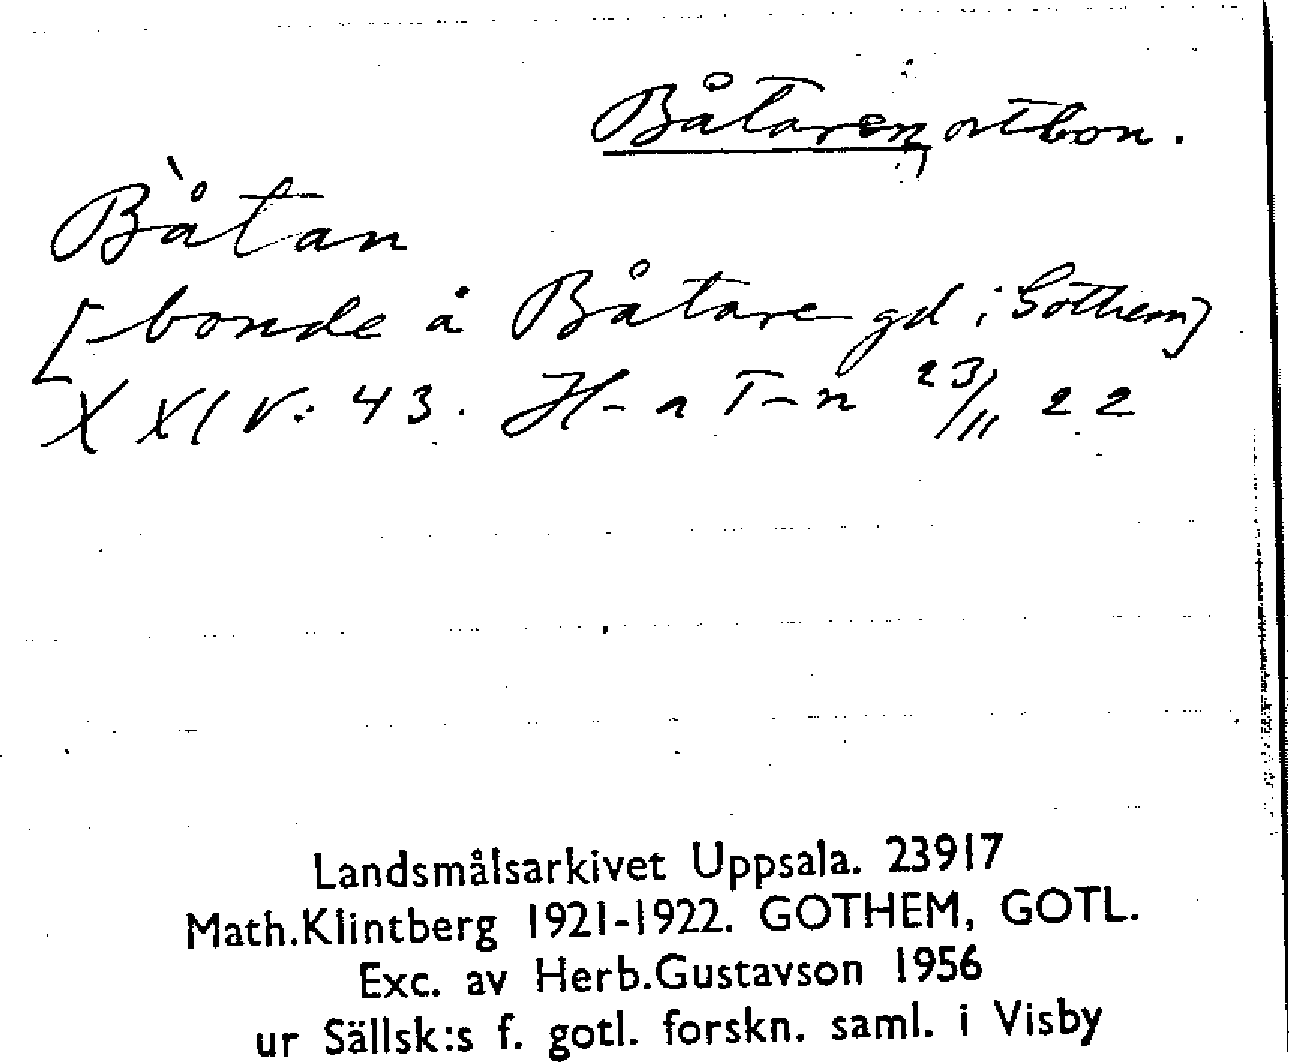 Båtaren, ortbon.
Bå̀tan
[bonde å Båtare gd i Gothem]
XXIV: 43. H-a T-n 23/11 22
Landsmålsarkivet Uppsala. 23917
Math.Klintberg 1921-1922. GOTHEM, GOTL.
Exc. av Herb.Gustavson 1956
ur Sällsk:s f. gotl. forskn. saml. i Visby